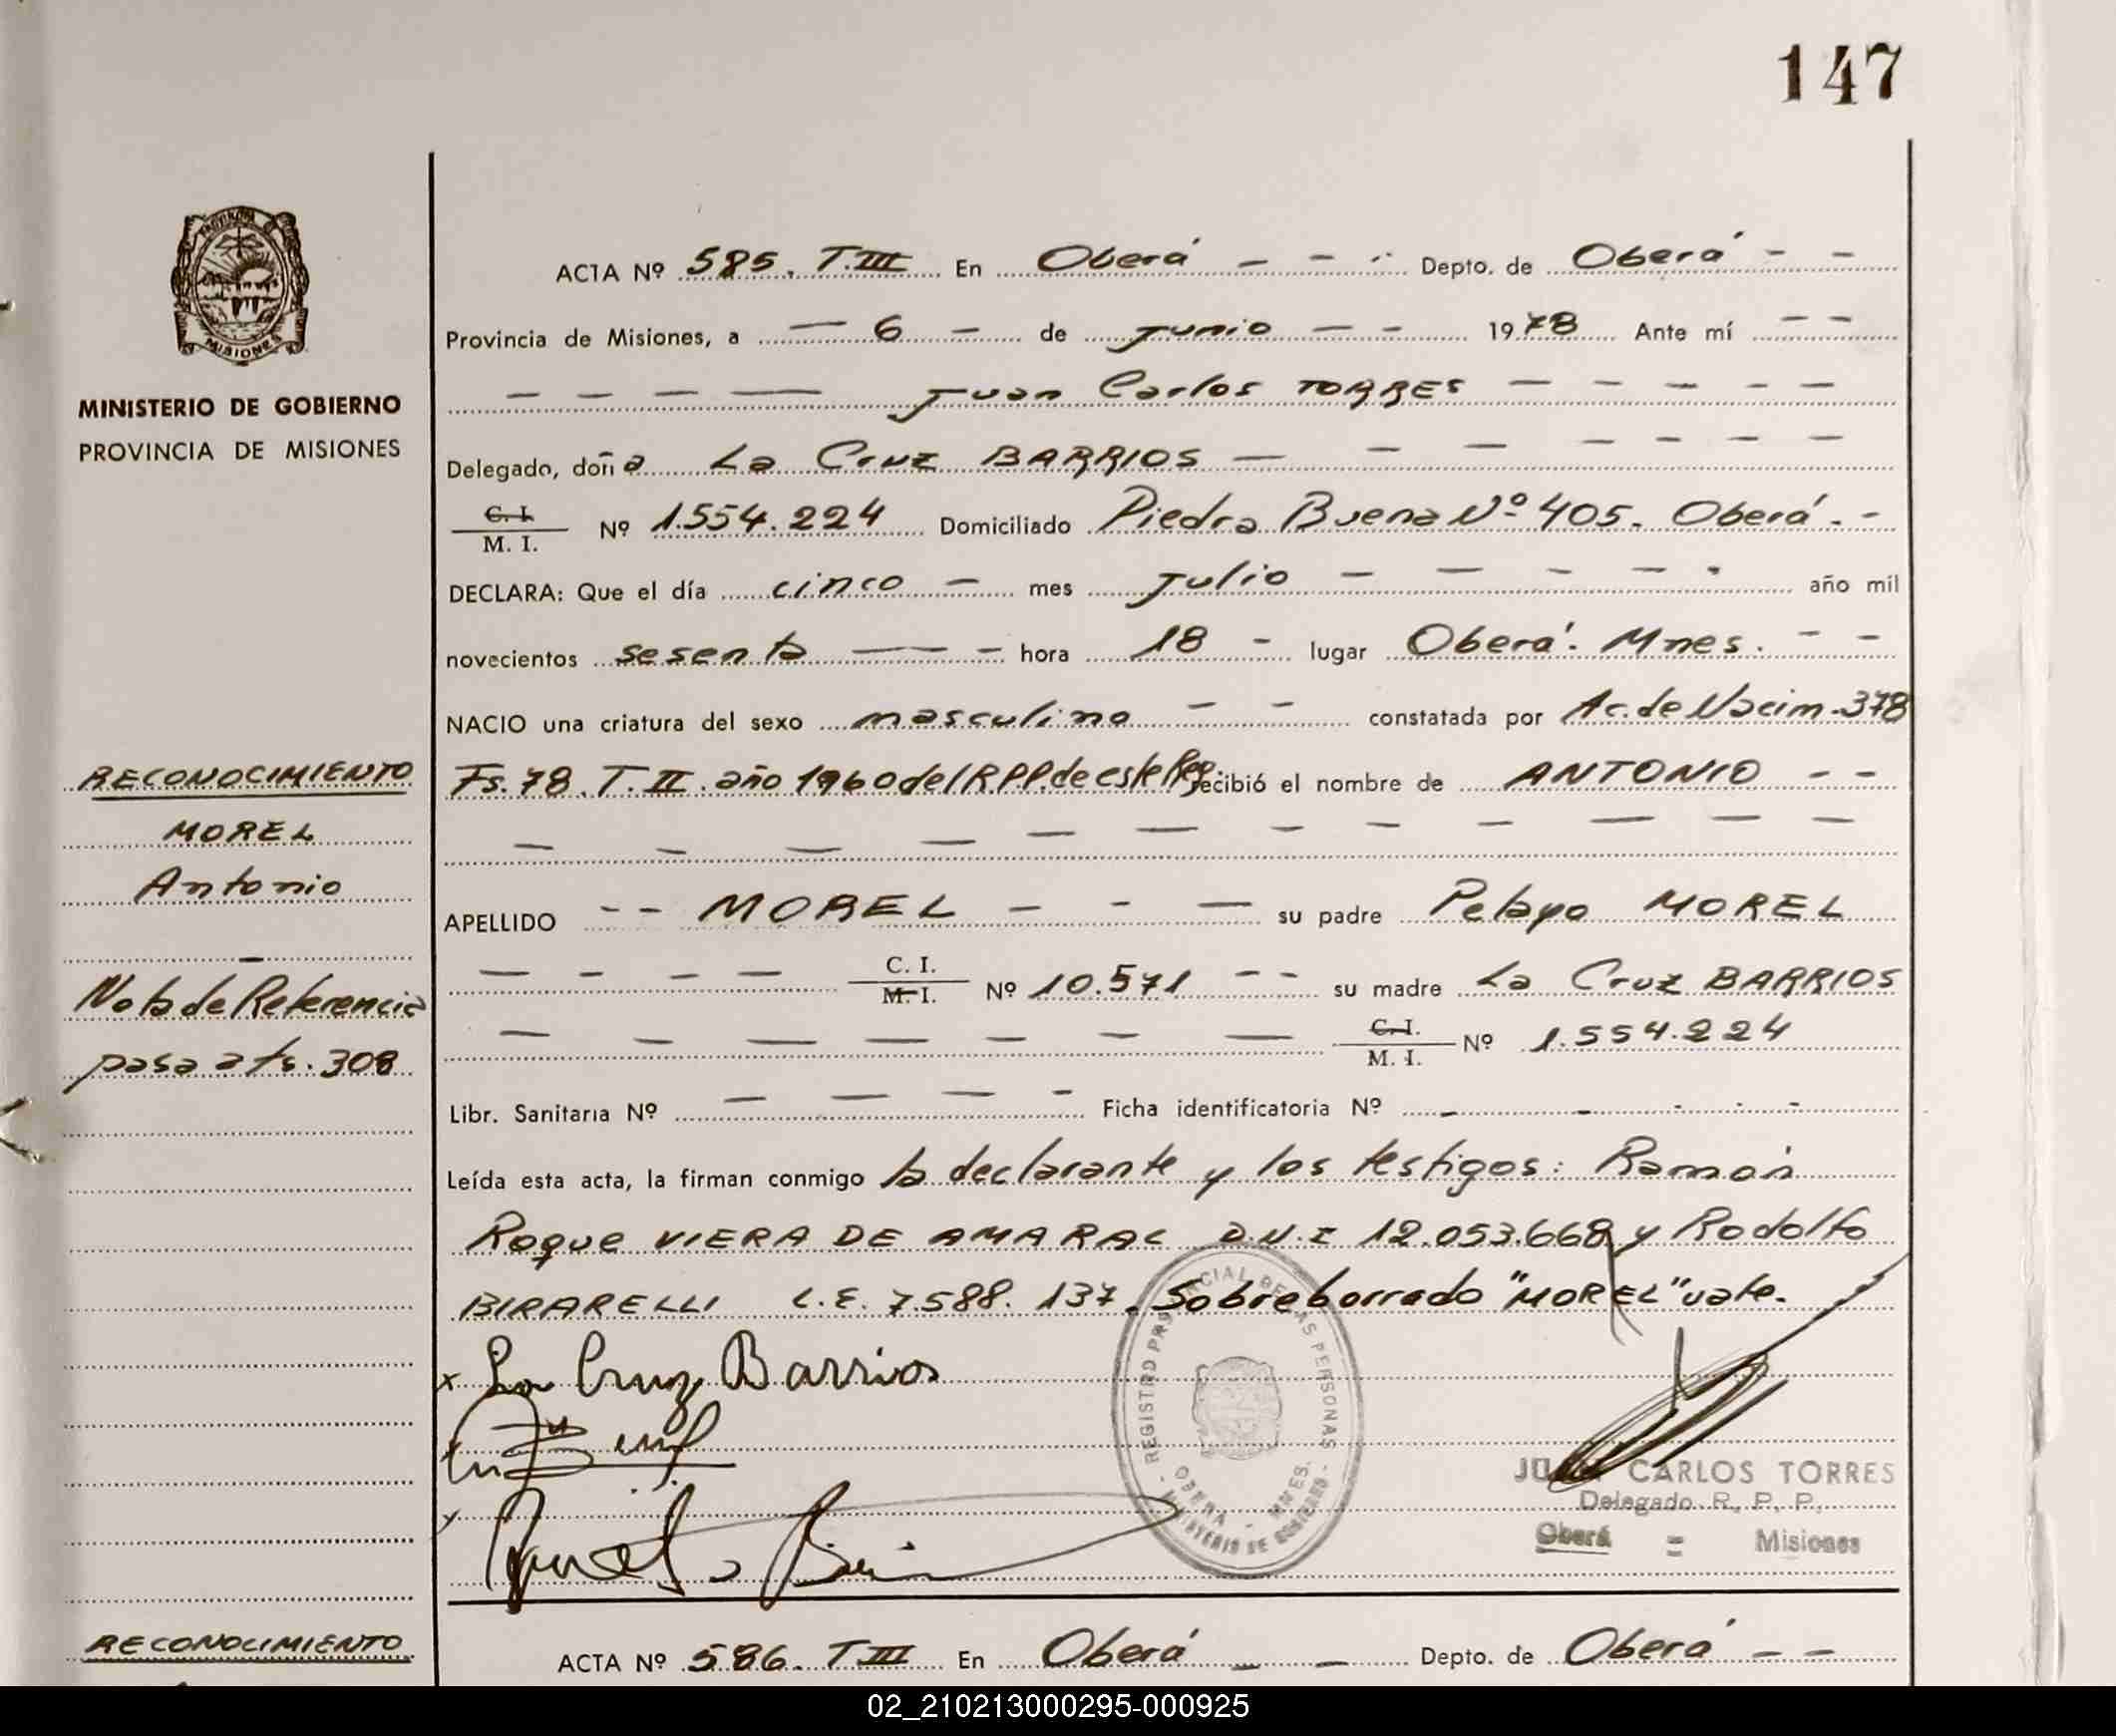 147
PROVINCIA
MISIONES
MINISTERIO DE GOBIERNO
PROVINCIA DE MISIONES
ACTA Nº 585. T.III En Oberá - - Depto. de Oberá - -
Provincia de Misiones, a - 6 - de Junio - - 1978 Ante mí - -
- - - - Juan Carlos TORRES - - - - -
Delegado, doña La Cruz BARRIOS - - - - - - -
C. I.
M. I. Nº 1.554.224 Domiciliado Piedra Buena Nº 405. Oberá. -
DECLARA: Que el día cinco - mes Julio - - - - - año mil
novecientos sesenta - - - hora 18 - lugar Oberá. Mnes. - -
NACIO una criatura del sexo masculino - - constatada por Ac. de Nacim. 378
Fs. 78. T. II. año 1960 del R.P.P. de este Reg. recibió el nombre de ANTONIO - -
- - - - - - - - - - - -
APELLIDO - - MOREL - - - su padre Pelayo MOREL
- - - - C. I.
M. I. Nº 10.571 - - su madre La Cruz BARRIOS
- - - - - - - C. I.
M. I. Nº 1.554.224
Libr. Sanitaria Nº - - - - Ficha identificatoria Nº - - - - -
Leída esta acta, la firman conmigo la declarante y los testigos: Ramón
Roque VIERA DE AMARAL D.N.I 12.053.668 y Rodolfo
BIRARELLI L.E. 7.588.137. Sobreborrado "MOREL" vale.
x La Cruz Barrios
REGISTRO PROVINCIAL DE LAS PERSONAS
OBERA - MNES.
MINISTERIO DE GOBIERNO
JUAN CARLOS TORRES
Delegado R. P. P.
Oberá = Misiones
RECONOCIMIENTO
MOREL
Antonio
-
Nota de Referencia
pasa a fs. 308
RECONOCIMIENTO
ACTA Nº 586. T III En Oberá - - Depto. de Oberá - -
02_210213000295-000925